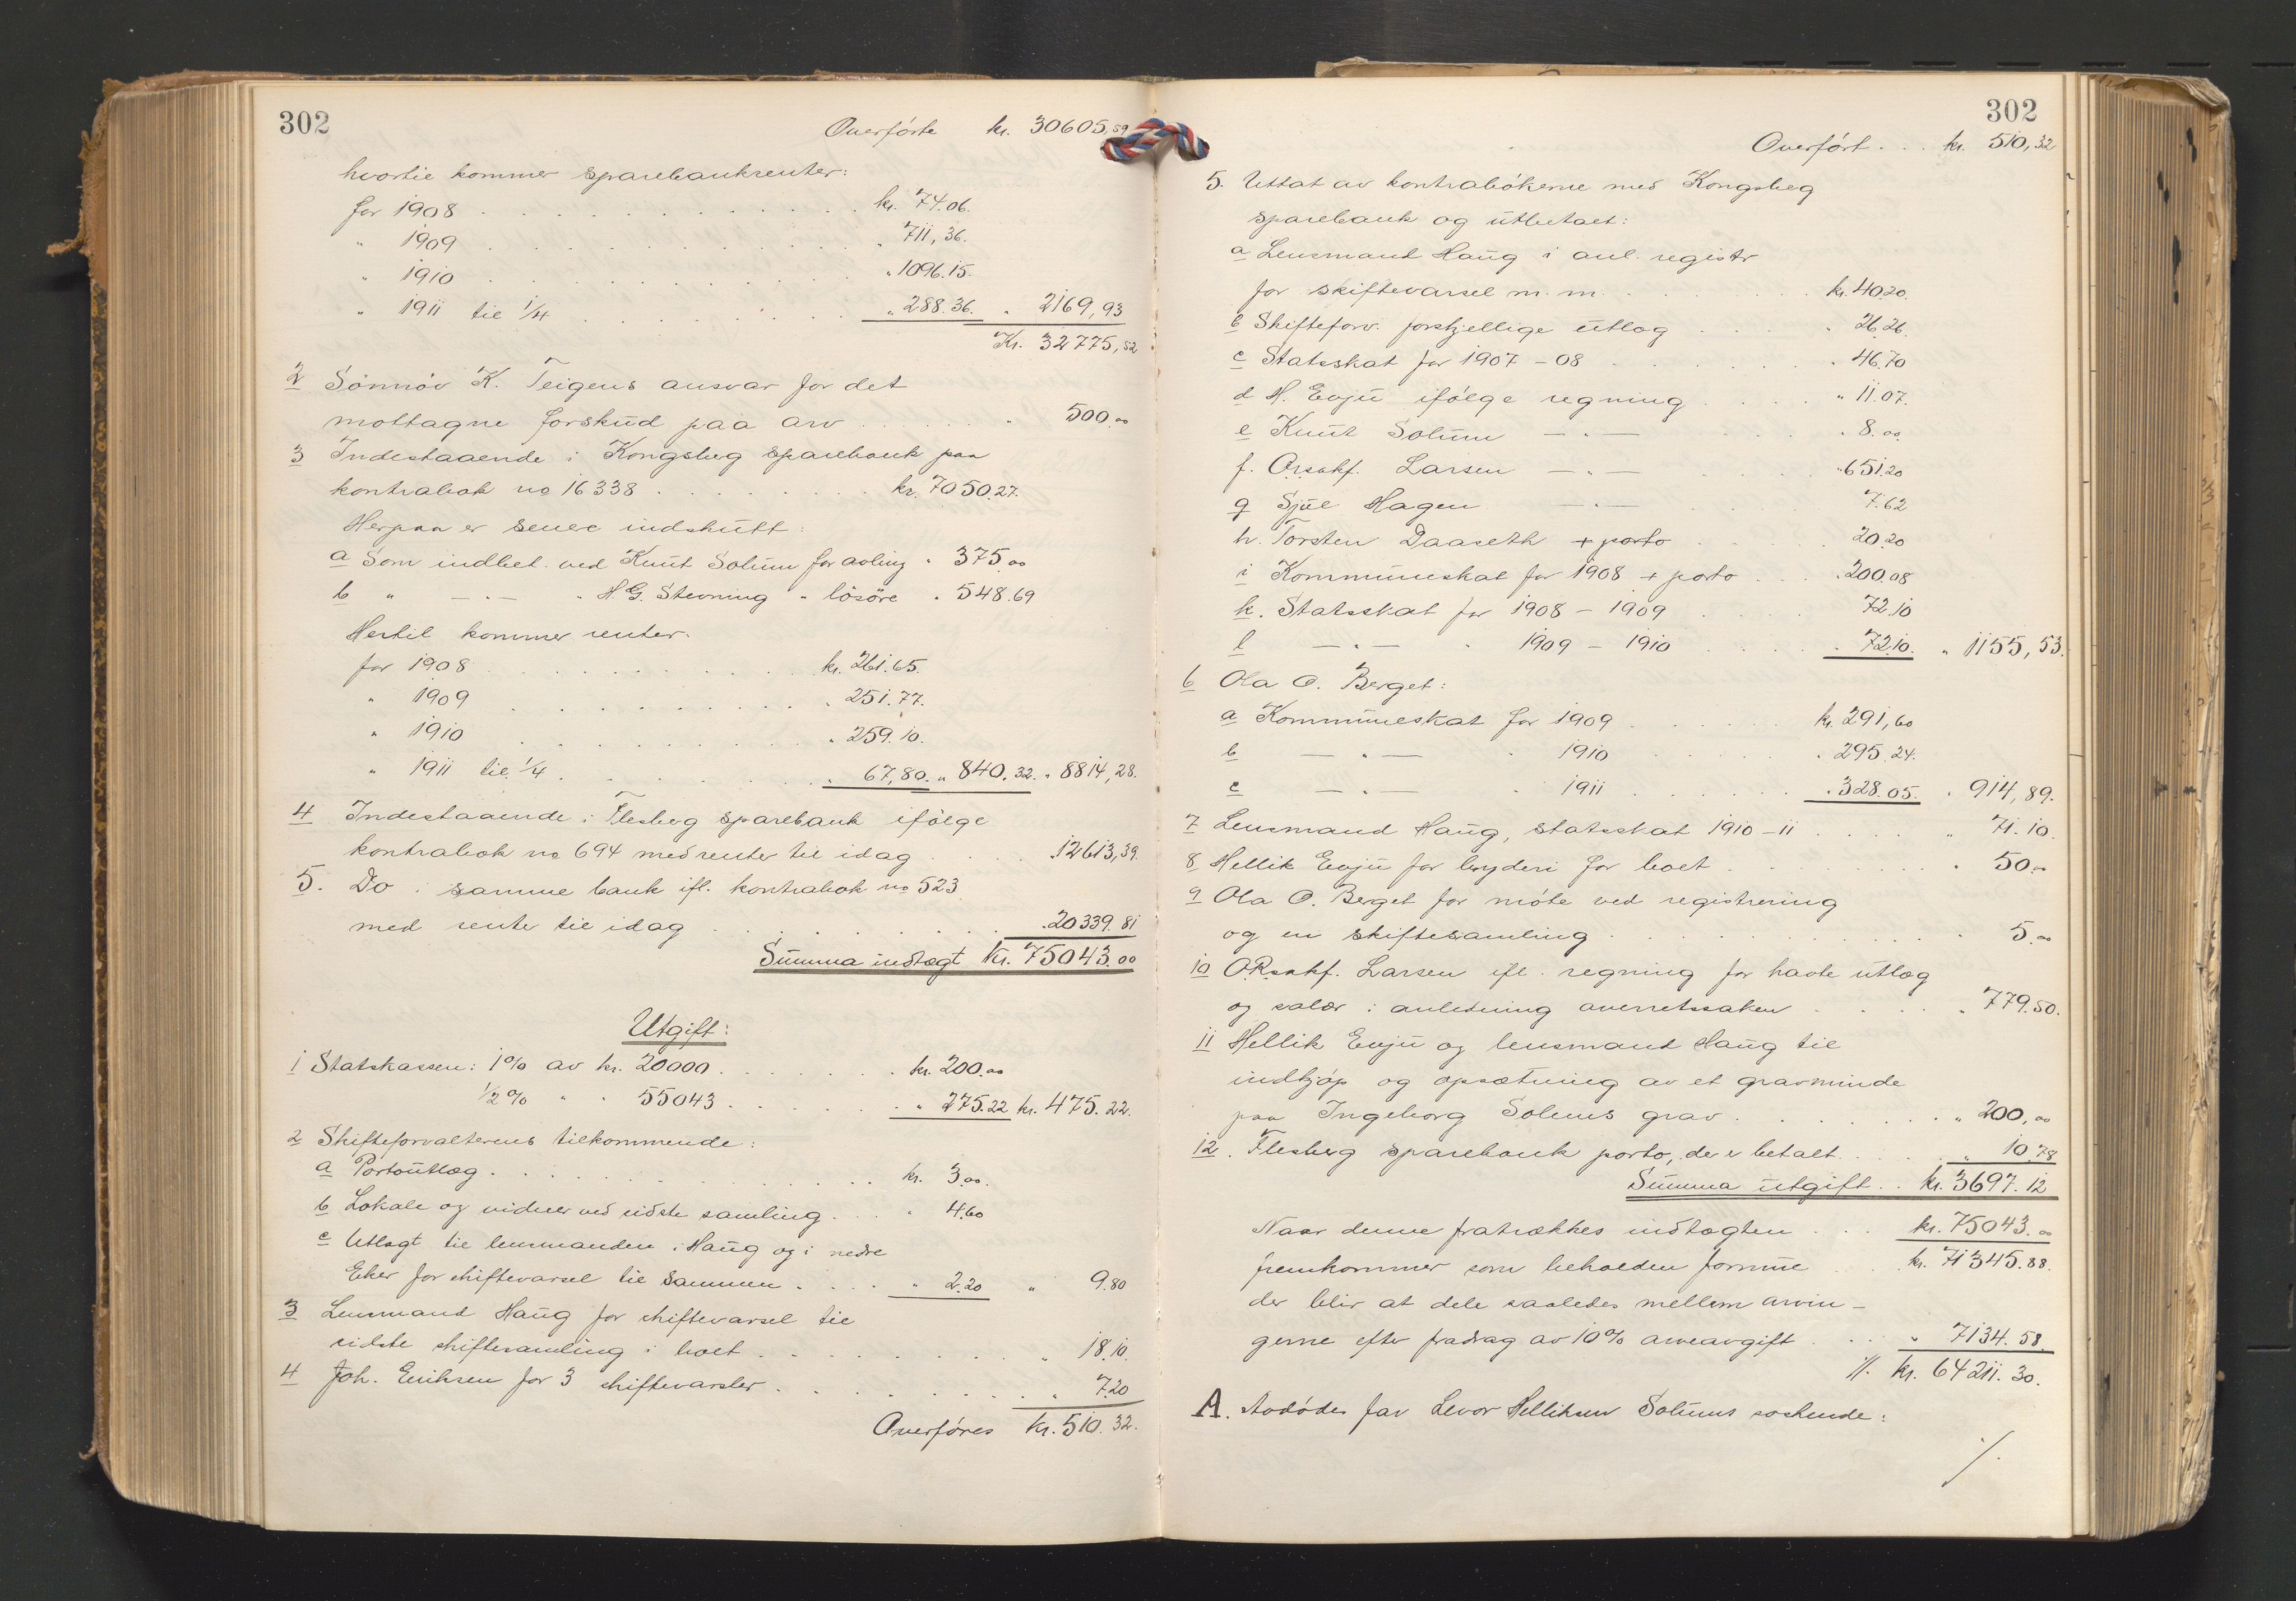 302
Overførte kr. 30605,59
hvortil kommer sparebankrenter:
for 1908 . . . kr. 74.06.
" 1909 . . . " 711,36.
" 1910 . . . " 1096.15.
" 1911 til 1/4 . . . " 288.36. " 2169,93
Kr. 32775,52
2 Sønnøv K. Teigens ansvar for det
mottagne forskud paa arv . . . " 500.00
3 Indestaaende i Kongsberg sparebank paa
kontrabok no 16338 . . . kr. 7050.27.
Herpaa er senere indskutt:
a Som indbet. ved Knut Solum for avling " 375.00
b " — " — " H.G. Stevning " løsøre " 548.69
Hertil kommer renter.
for 1908 . . . kr. 261.65.
" 1909 . . . " 251.77.
" 1910 . . . " 259.10.
" 1911 til 1/4 . . . " 67,80. " 840.32. " 8814,28.
4 Indestaaende i Flesberg sparebank ifølge
kontrabok no 694 med renter til idag . . . 12613,39.
5. Do i samme bank ifl. kontrabok no 523
med rente til idag . . . 20339.81
Summa indtægt Kr. 75043.00
Utgift:
1 Statskassen: 1% av kr. 20000 . . . kr. 200.00
1/2% " " 55043 . . . " 275.22 kr. 475.22.
2 Skifteforvalterens tilkommende:
a Portoutlæg . . . kr. 3.00.
b Lokale og vidner ved sidste samling . . . " 4.60
c Utlagt til lensmanden i Haug og i nedre
Eker for skiftevarsel til sammen . . . " 2.20 " 9.80
3 Lensmand Haug for skiftevarsel til
sidste skiftesamling i boet . . . " 18.10.
4 Joh. Eriksen for 3 skiftevarsler . . . " 7.20
Overføres Kr. 510.32.
302
Overført . . . kr. 510,32
5. Uttat av kontrabøkerne med Kongsberg
sparebank og utbetalt:
a Lensmand Haug i anl. registr
for skiftevarsel m. m. . . . kr. 40.20.
b Skifteforv. forskjellige utlæg . . . " 26.26.
c Statsskat for 1907 - 08 . . . " 46.70
d H. Evju ifølge regning . . . " 11.07.
e Knut Solum — " — . . . " 8.00.
f. O.r.sakf. Larsen — " — . . . " 651.20
g Sjul Hagen — " — . . . 7.62
h. Torsten Daaseth + porto . . . 20.20
i Kommuneskat for 1908 + porto . . . " 200.08
k. Statsskat for 1908 - 1909 . . . 72.10
l — " — " 1909 - 1910 . . . " 72.10. " 1155,53.
6 Ola O. Berget:
a Kommuneskat for 1909 . . . kr. 291,60
b — " — " 1910 . . . " 295.24.
c — " — " 1911 . . . " 328.05. " 914,89.
7 Lensmand Haug, statsskat 1910-11 . . . " 71.10.
8 Hellik Evju for bryderi for boet . . . " 50.00
9 Ola O. Berget for møte ved registrering
og en skiftesamling . . . " 5.00
10 O.R.sakf. Larsen ifl. regning for havte utlæg
og salær i anledning averretssaken . . . " 779.50.
11 Hellik Evju og lensmand Haug til
indkjøp og opsætning av et gravminde
paa Ingeborg Solums grav . . . " 200,00
12. Flesberg sparebank porto, der er betalt . . . " 10.78
Summa utgift . . kr. 3697.12
Naar denne fratrækkes indtægten . . . kr. 75043.00
fremkommer som beholden formue . . . kr. 71345.88.
der blir at dele saaledes mellem arvin-
gerne efter fradrag av 10% arveavgift . . . " 7134.58.
//. kr. 64211.30.
A. Avdødes far Levor Helliksen Solums søskende:
/.